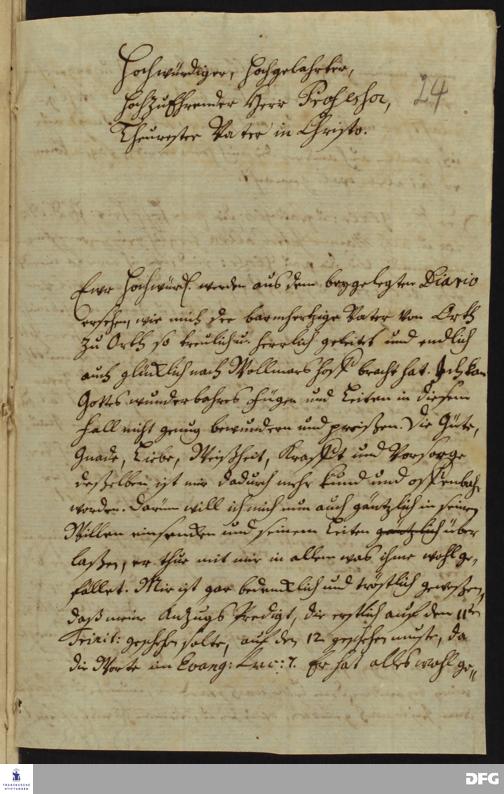 Hochwürdiger, Hochgelahrter,
Hochzuehrender Herr Professor,
Theurester Vater in Christo.
24
Ewr Hochwürd. werden aus dem beygelegten Diario
ersehen, wie mich der barmhertzige Vater von Orth
zu Orth so treulich u. herrlich geleitet und endlich
auch glücklich nach Wollmarshoff bracht hat. Ich kan
Gottes wunderbahres Fügen und Leiten in diesem
Fall nicht genug bewundern und preißen. Die Güte,
Gnade, Liebe, Weißheit, Krafft und Vorsorge
deßelben ist mir dadurch mehr kund und offenbahr
worden. Darum will ich mich nun auch gäntzlich in seinen
Willen einsencken und seinem Leiten gäntzlich über
laßen, er thue mit mir in allem was ihme wohl ge-
fället. Mir ist gar bedencklich und tröstlich gewesen,
daß meine Anzugs Predigt, die erstlich auf den 11ten
Trinit: geschehen solte, auf den 12 geschehen muste, da
die Worte im Evang: Marc: 7. Er hat alles wohl ge-
FRANCKESCHE STIFTUNGEN
DFG